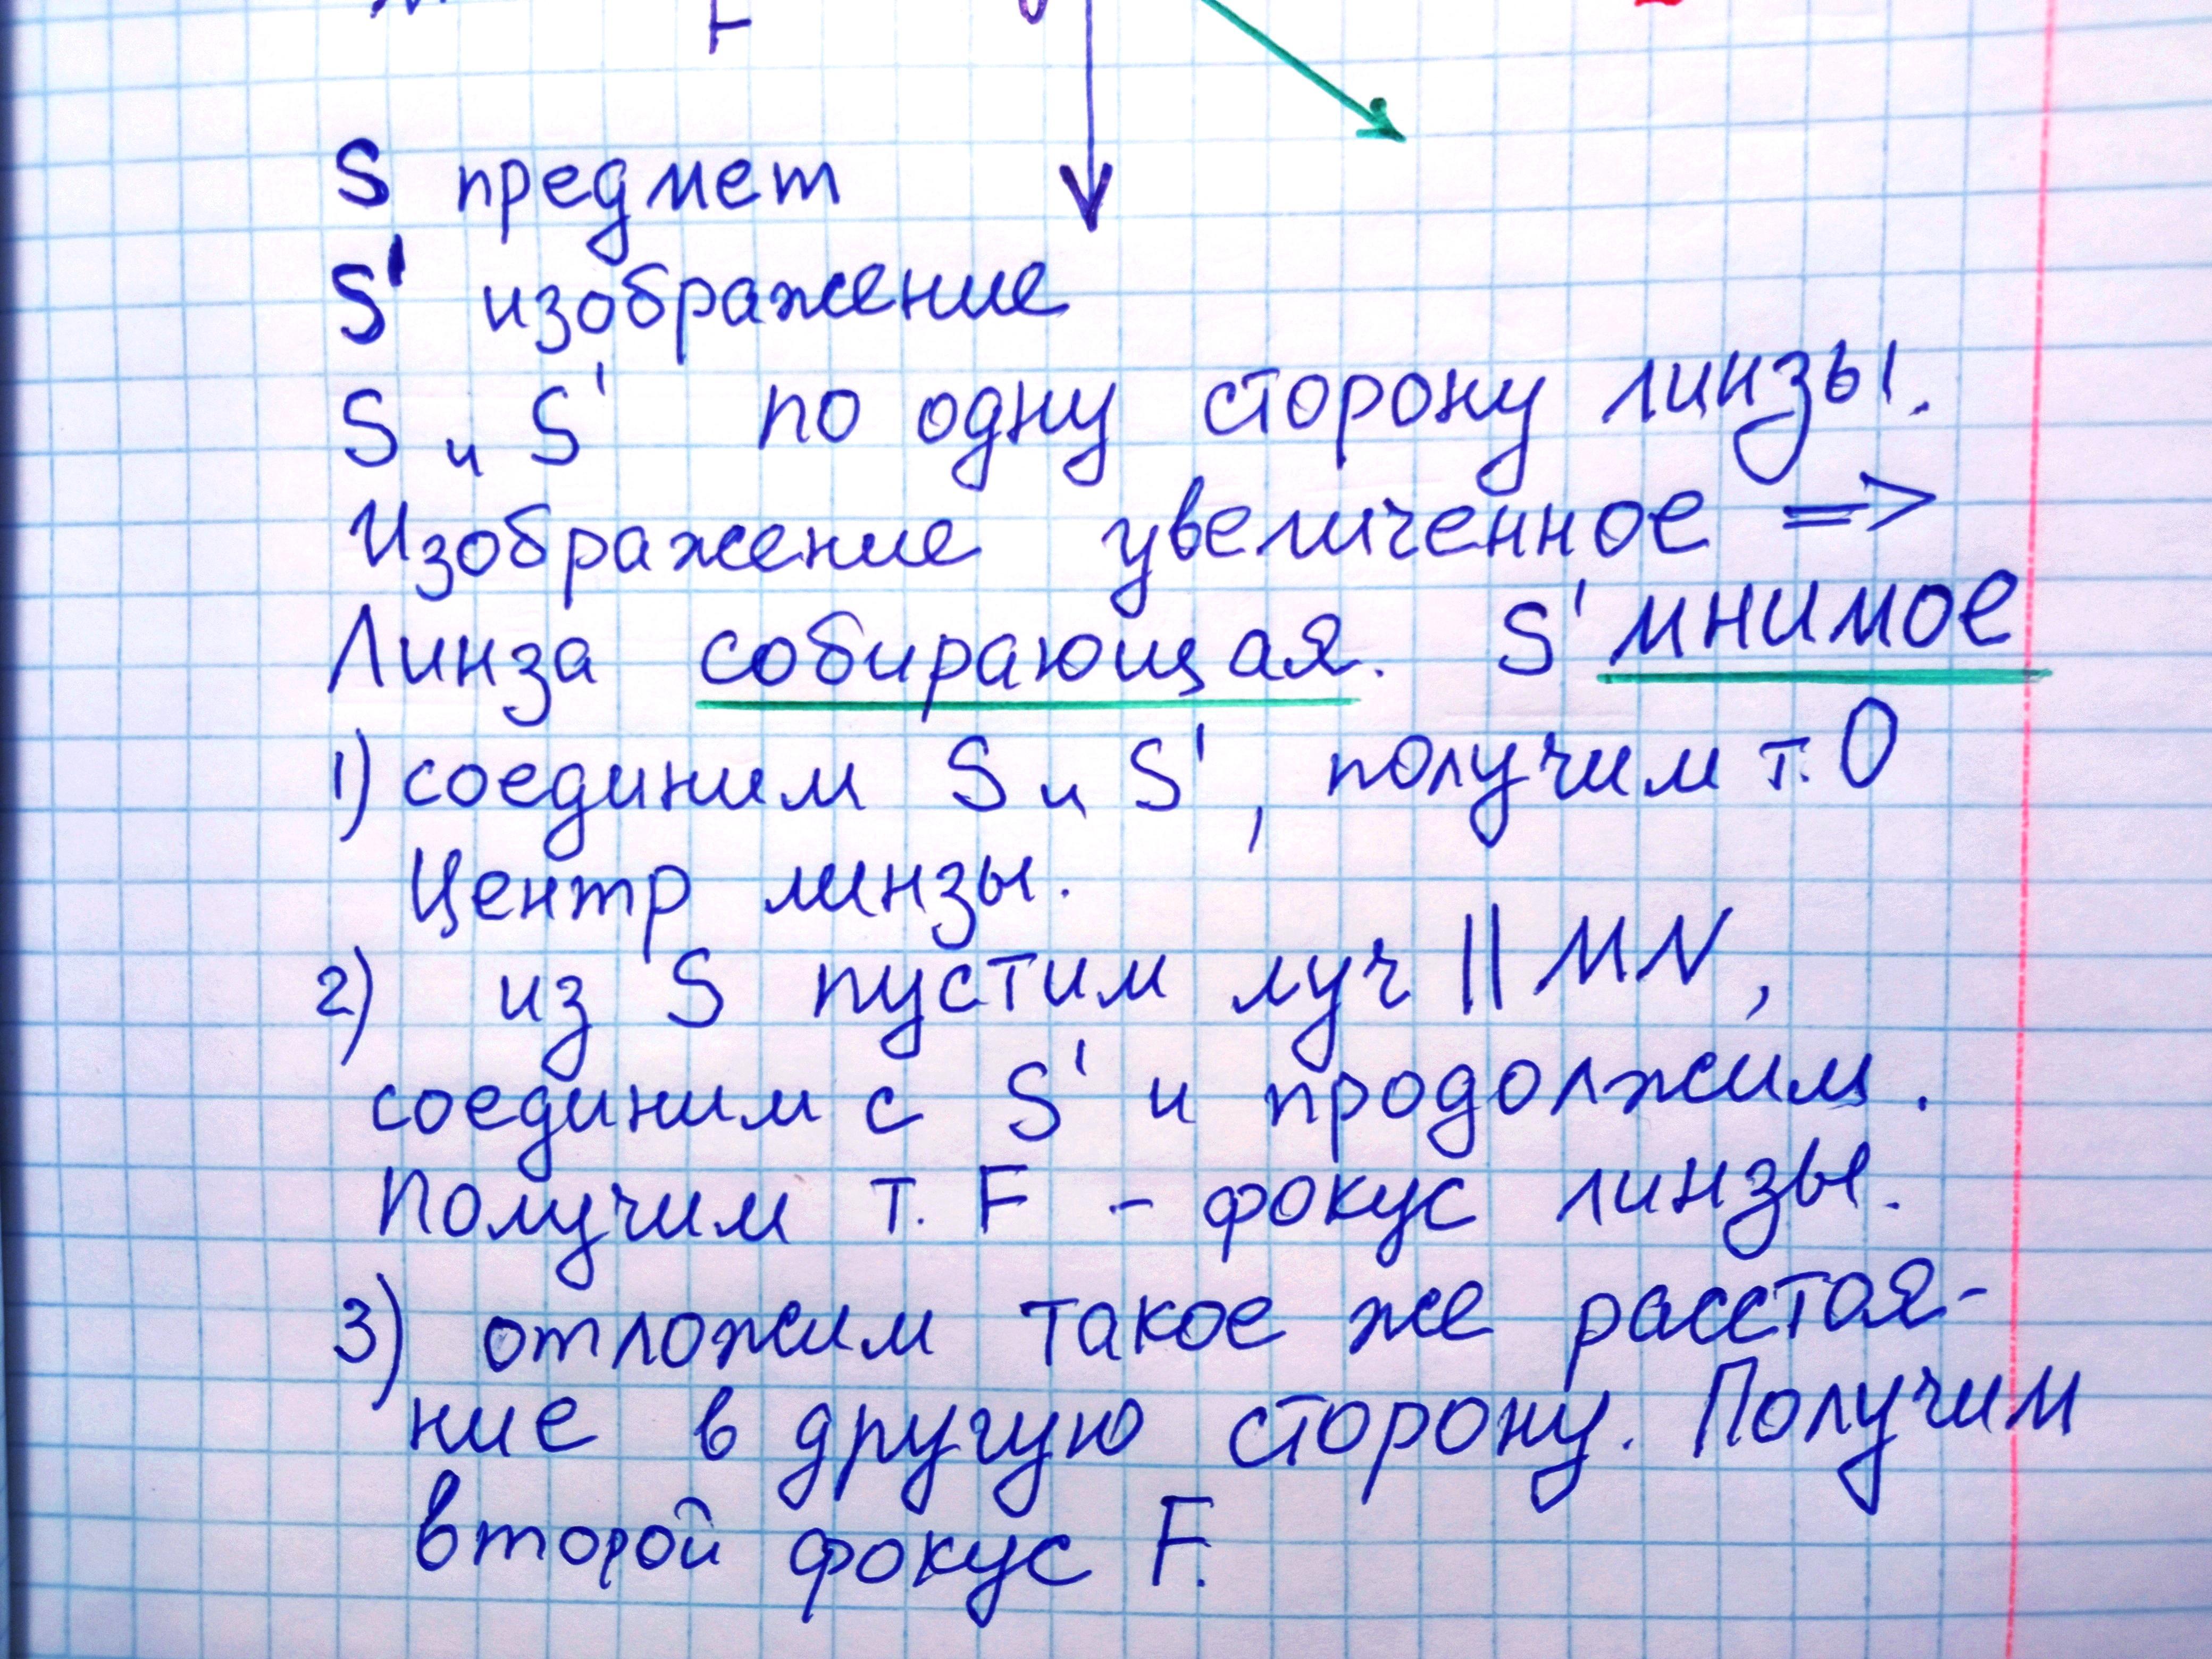 F
S предмет
S' изображение
S и S' по одну сторону линзы.
Изображение увеличенное =>
Линза собирающая. S' мнимое
1) соединим S и S', получим т. O
Центр линзы.
2) из S пустим луч || MN,
соединим с S' и продолжим.
Получим т. F - фокус линзы.
3) отложим такое же расстоя-
ние в другую сторону. Получим
второй фокус F.